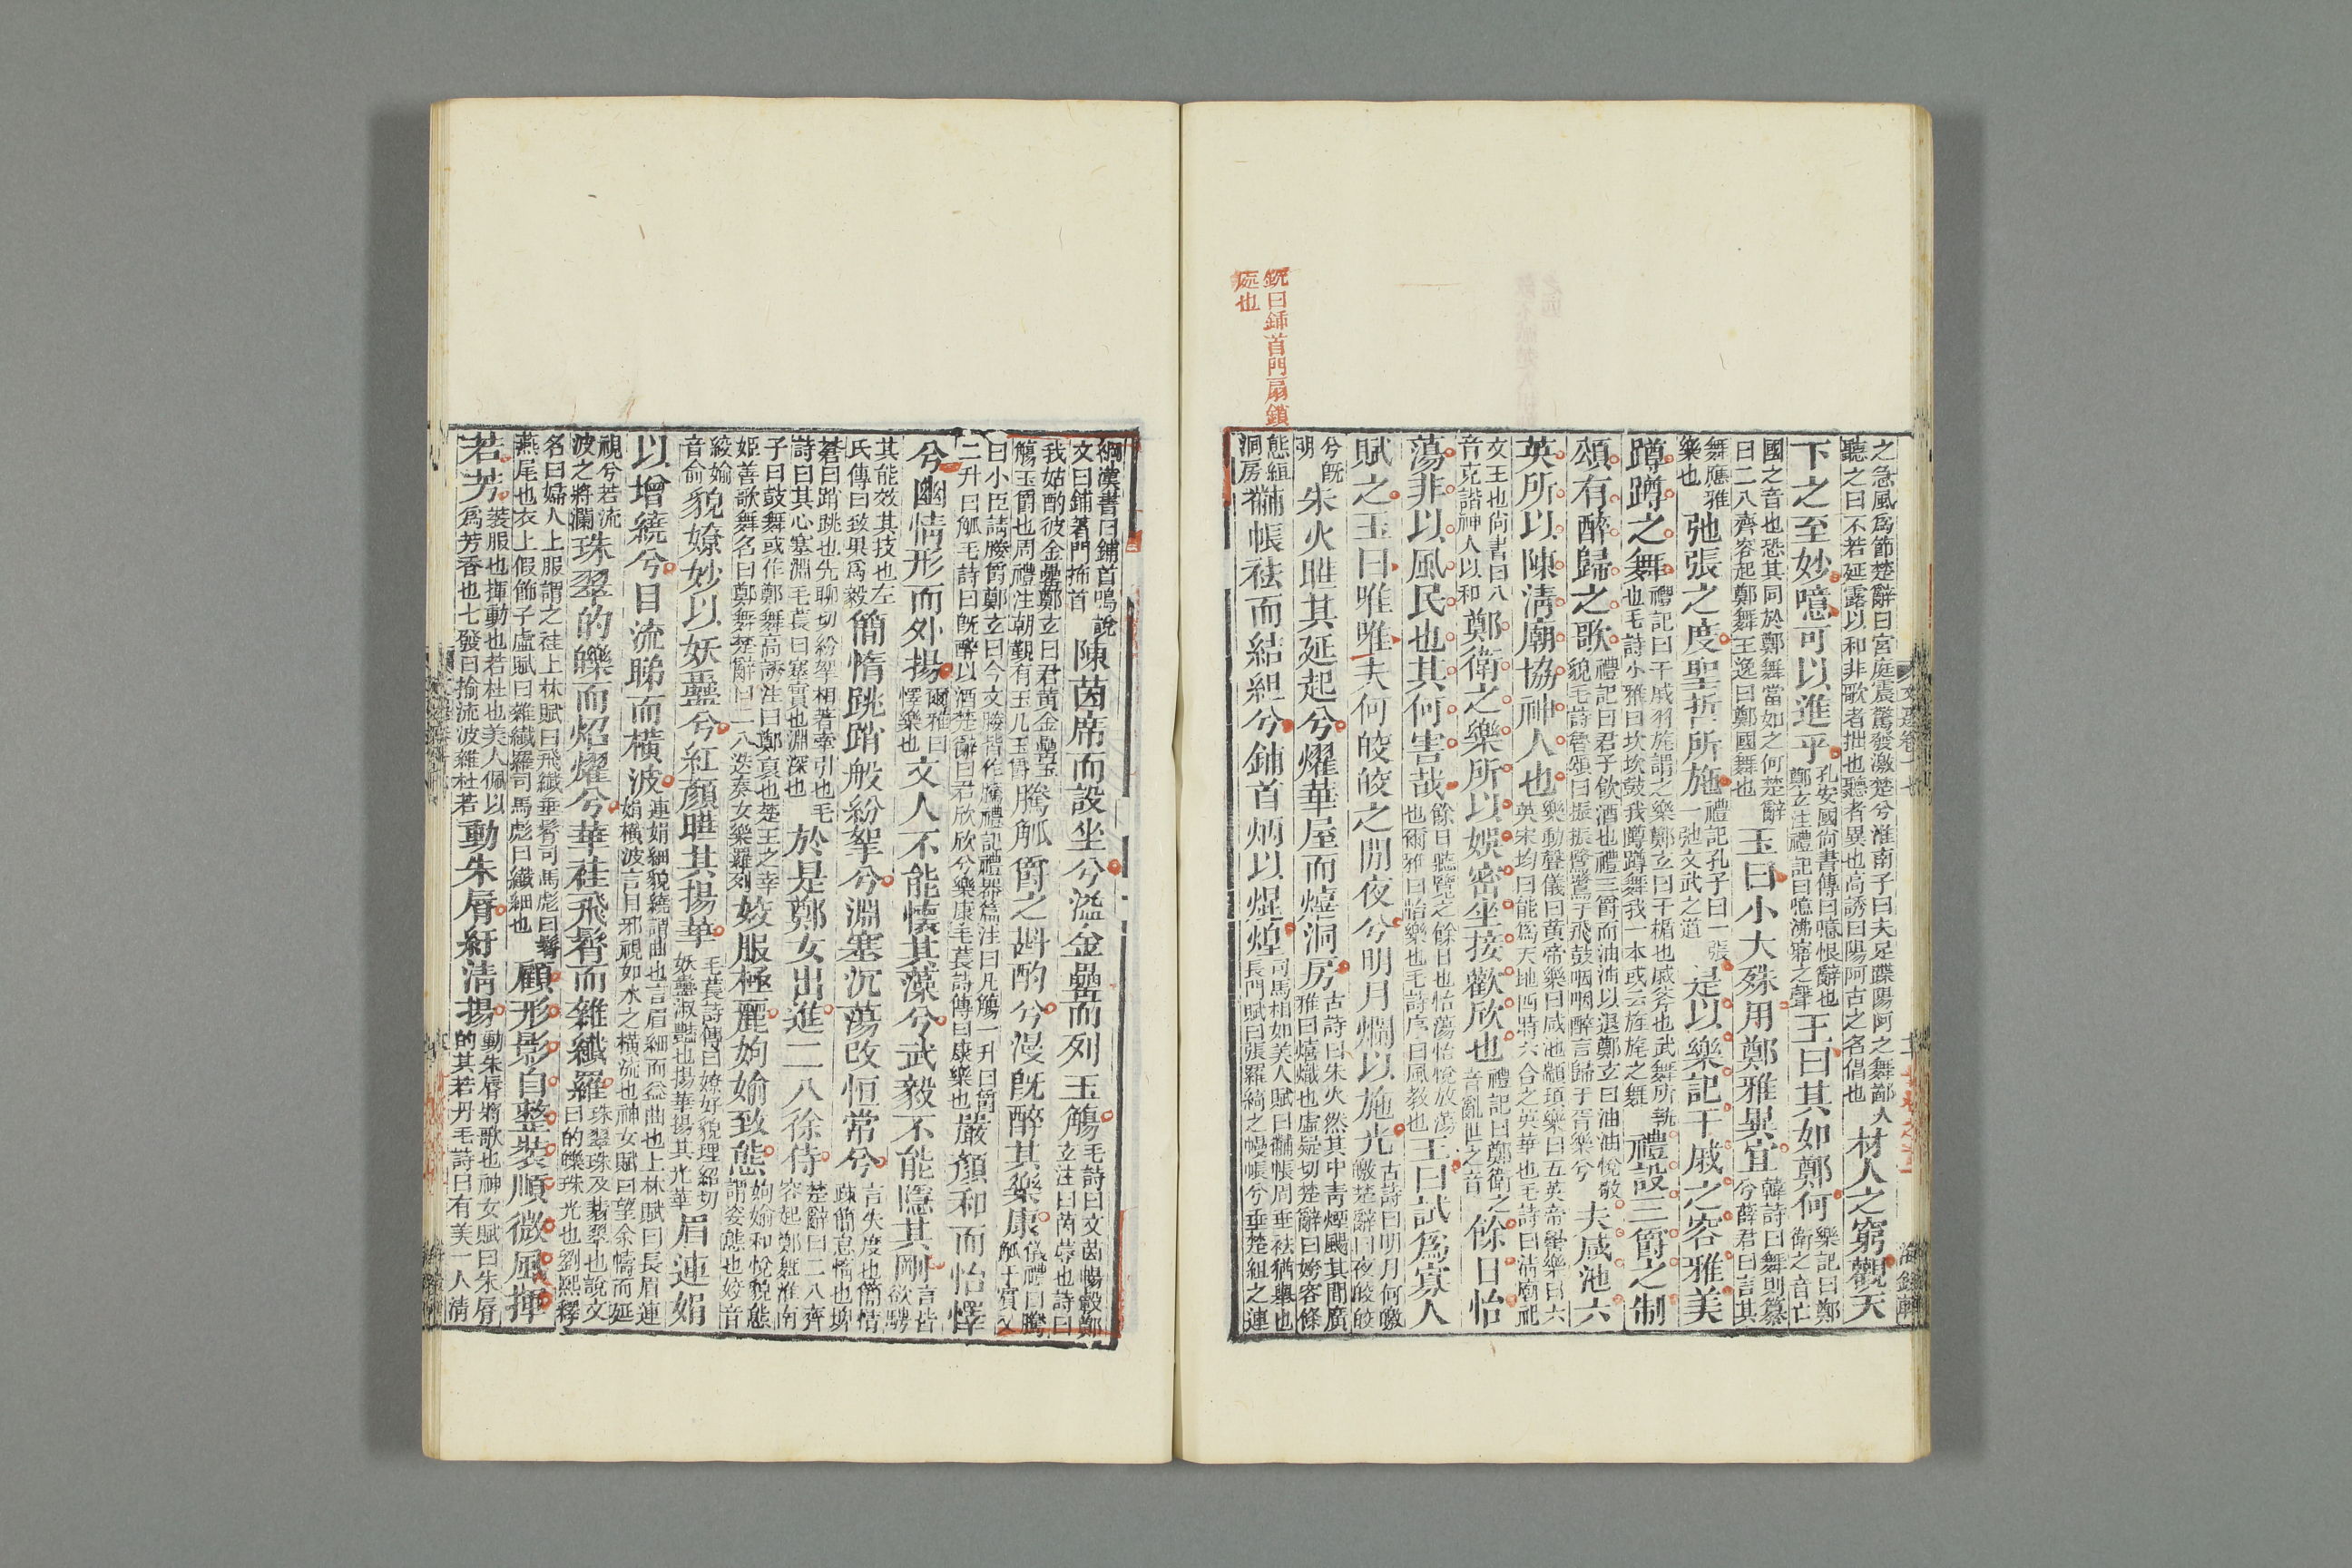 銑曰鋪首門扇鎖
處也
之急風爲節楚辭曰宮庭震驚發激楚兮淮南子曰夫足蹀陽阿之舞鄙人聽之曰不若延露以和非歌者拙也聽者異也高誘曰陽阿古之名倡也材人之窮觀天
下之至妙噫可以進乎孔安國尚書傳曰噫恨辭也鄭玄注禮記曰噫沸寤之聲王曰其如鄭何樂記曰鄭衛之音亡
國之音也恐其同於鄭舞當如之何楚辭曰二八齊容起鄭舞王逸曰鄭國舞也玉曰小大殊用鄭雅異宜韓詩曰舞則纂兮薛君曰言其
舞應雅樂也弛張之度聖哲所施禮記孔子曰一張一弛文武之道是以樂記干戚之容雅美
蹲蹲之舞禮記曰干戚羽旄謂之樂鄭玄曰干楯也戚斧也武舞所執也毛詩小雅曰坎坎鼓我蹲蹲舞我一本或云旌旄之舞禮設三爵之制
頌有醉歸之歌禮記曰君子飲酒也禮三爵而油油以退鄭玄曰油油悅敬貌毛詩魯頌曰振振鷺鷺于飛鼓咽咽醉言歸于胥樂兮夫咸池六
英所以陳清廟協神人也樂動聲儀曰黃帝樂曰咸池顓頊樂曰五英帝嚳樂曰六英宋均曰能爲天地四時六合之英華也毛詩曰清廟祀
文王也尚書曰八音克諧神人以和鄭衛之樂所以娛密坐接歡欣也禮記曰鄭衛之音亂世之音餘日怡
蕩非以風民也其何害哉餘日聽覽之餘日也怡蕩怡悅放蕩也爾雅曰怡樂也毛詩序曰風教也王曰試爲寡人
賦之玉曰唯唯夫何皎皎之閒夜兮明月爛以施光古詩曰明月何皦皦楚辭曰夜皎皎
兮旣明朱火曄其延起兮燿華屋而熺洞房古詩曰朱火然其中青煙颺其間廣雅曰熺熾也虛疑切楚辭曰姱容脩
態絚洞房黼帳袪而結組兮鋪首炳以焜煌司馬相如美人賦曰黼帳周垂袪猶舉也長門賦曰張羅綺之幔帳兮垂楚組之連
綱漢書曰鋪首鳴說文曰鋪著門抪首陳茵席而設坐兮溢金罍而列玉觴毛詩曰文茵暢轂鄭玄注曰茵蓐也詩曰
我姑酌彼金罍鄭玄曰君黃金罍玉觴玉爵也周禮注朝覲有玉几玉爵騰觚爵之斟酌兮漫旣醉其樂康儀禮曰騰觚于賓又
曰小臣請媵爵鄭玄曰今文媵皆作騰禮記禮器篇注曰凡觴一升曰爵二升曰觚毛詩曰旣醉以酒楚辭曰君欣欣兮樂康毛萇詩傳曰康樂也嚴顏和而怡懌
兮幽情形而外揚爾雅曰懌樂也文人不能懷其藻兮武毅不能隱其剛言皆欲騁
其能效其技也左氏傳曰致果爲毅簡惰跳踃般紛挐兮淵塞沉蕩改恒常兮言失度也簡情疎簡怠惰也埤
蒼曰踃跳也先聊切紛挐相著牽引也毛詩曰其心塞淵毛萇曰塞實也淵深也於是鄭女出進二八徐侍楚辭曰二八齊容起鄭舞淮南
子曰鼓舞或作鄭舞高誘注曰鄭袖也楚王之幸姬善歌舞名曰鄭舞楚辭曰二八迭奏女樂羅列姣服極麗姁媮致態姁媮和悅貌態謂姿態也姣音
絞媮音俞貌嫽妙以妖蠱兮紅顏曄其揚華毛萇詩傳曰嫽好貌理紹切妖蠱淑豔也揚華揚其光華眉連娟
以增繞兮目流睇而橫波連娟細貌繞謂曲也言眉細而益曲也上林賦曰長眉連娟橫波言目邪視如水之橫流也神女賦曰望余帷而延
視兮若流波之將瀾珠翠的皪而炤燿兮華袿飛髾而雜纖羅珠翠珠及翡翠也說文曰的皪珠光也劉熙釋
名曰婦人上服謂之袿上林賦曰飛纖垂髾司馬彪曰髾燕尾也衣上假飾子虛賦曰雜纖羅司馬彪曰纖細也顧形影自整裝順微風揮
若芳裝服也揮動也若杜也美人佩以爲芳香也七發曰揄流波雜杜若動朱脣紆清揚動朱脣將歌也神女賦曰朱脣的其若丹毛詩曰有美一人清